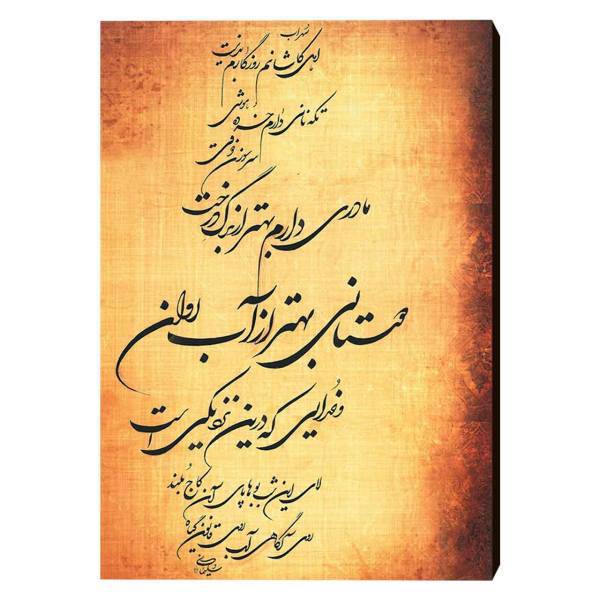 سهراب
اهل کاشانم روزگارم بد نیست
تکه نانی دارم خرده هوشی
سر سوزن ذوقی
مادری دارم بهتر از برگ درخت
دوستانی بهتر از آب روان
و خدایی که در این نزدیکی است
لای این شب بوها پای آن کاج بلند
روی آگاهی آب روی قانون گیاه